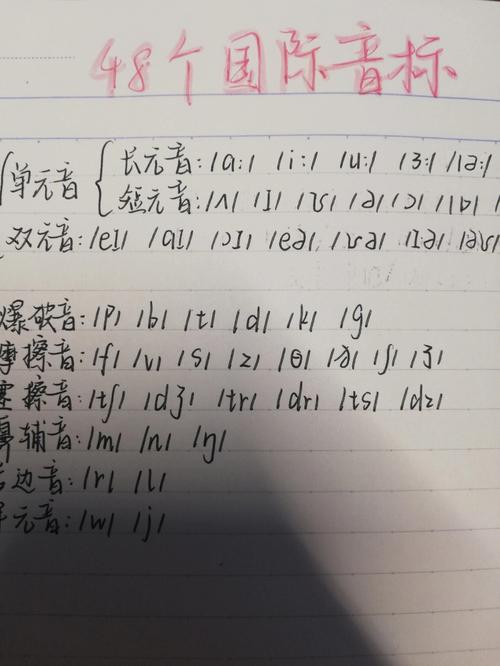 48个国际音标
单元音 { 长元音: /ɑ:/ /i:/ /u:/ /ɜ:/ /ɑ:/
短元音: /ʌ/ /ɪ/ /ʊ/ /ə/ /ɔ/ /ɒ/
双元音: /eɪ/ /aɪ/ /ɔɪ/ /eə/ /ʊə/ /ɪə/ /əʊ/
爆破音: /p/ /b/ /t/ /d/ /k/ /g/
摩擦音: /f/ /v/ /s/ /z/ /θ/ /ð/ /ʃ/ /ʒ/
塞擦音: /tʃ/ /dʒ/ /tr/ /dr/ /ts/ /dz/
鼻辅音: /m/ /n/ /ŋ/
边音: /r/ /l/
元音: /w/ /j/